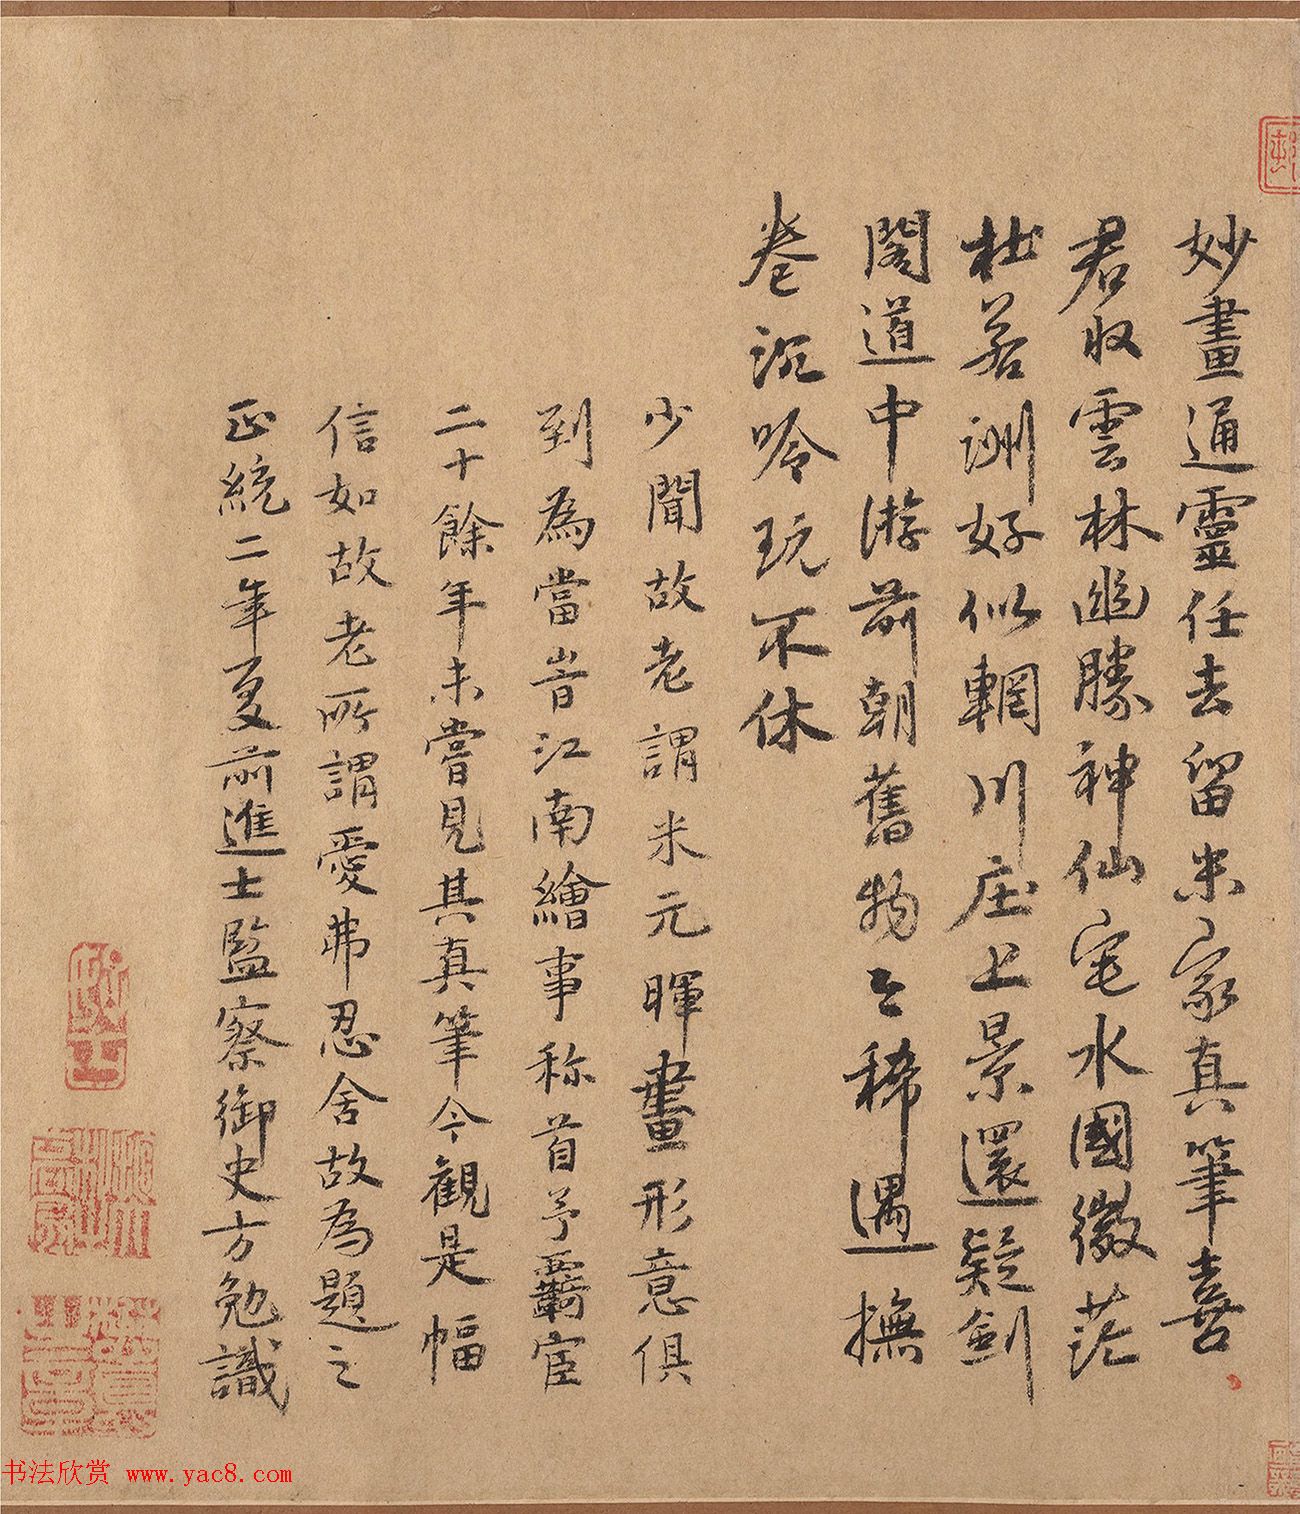 妙畫通靈任去留米家真筆喜
君收雲林幽勝神仙宅水國微茫
杜若洲好似輞川庄上景還疑劍
閣道中游前朝舊物今稀遇撫
卷沉吟玩不休
少聞故老謂米元暉畫形意俱
到為當時江南繪事称首予羈宦
二十餘年未嘗見其真筆今觀是幅
信如故老所謂愛弗忍舍故為題之
正統二年夏前進士監察御史方勉識
书法欣赏 www.yac8.com